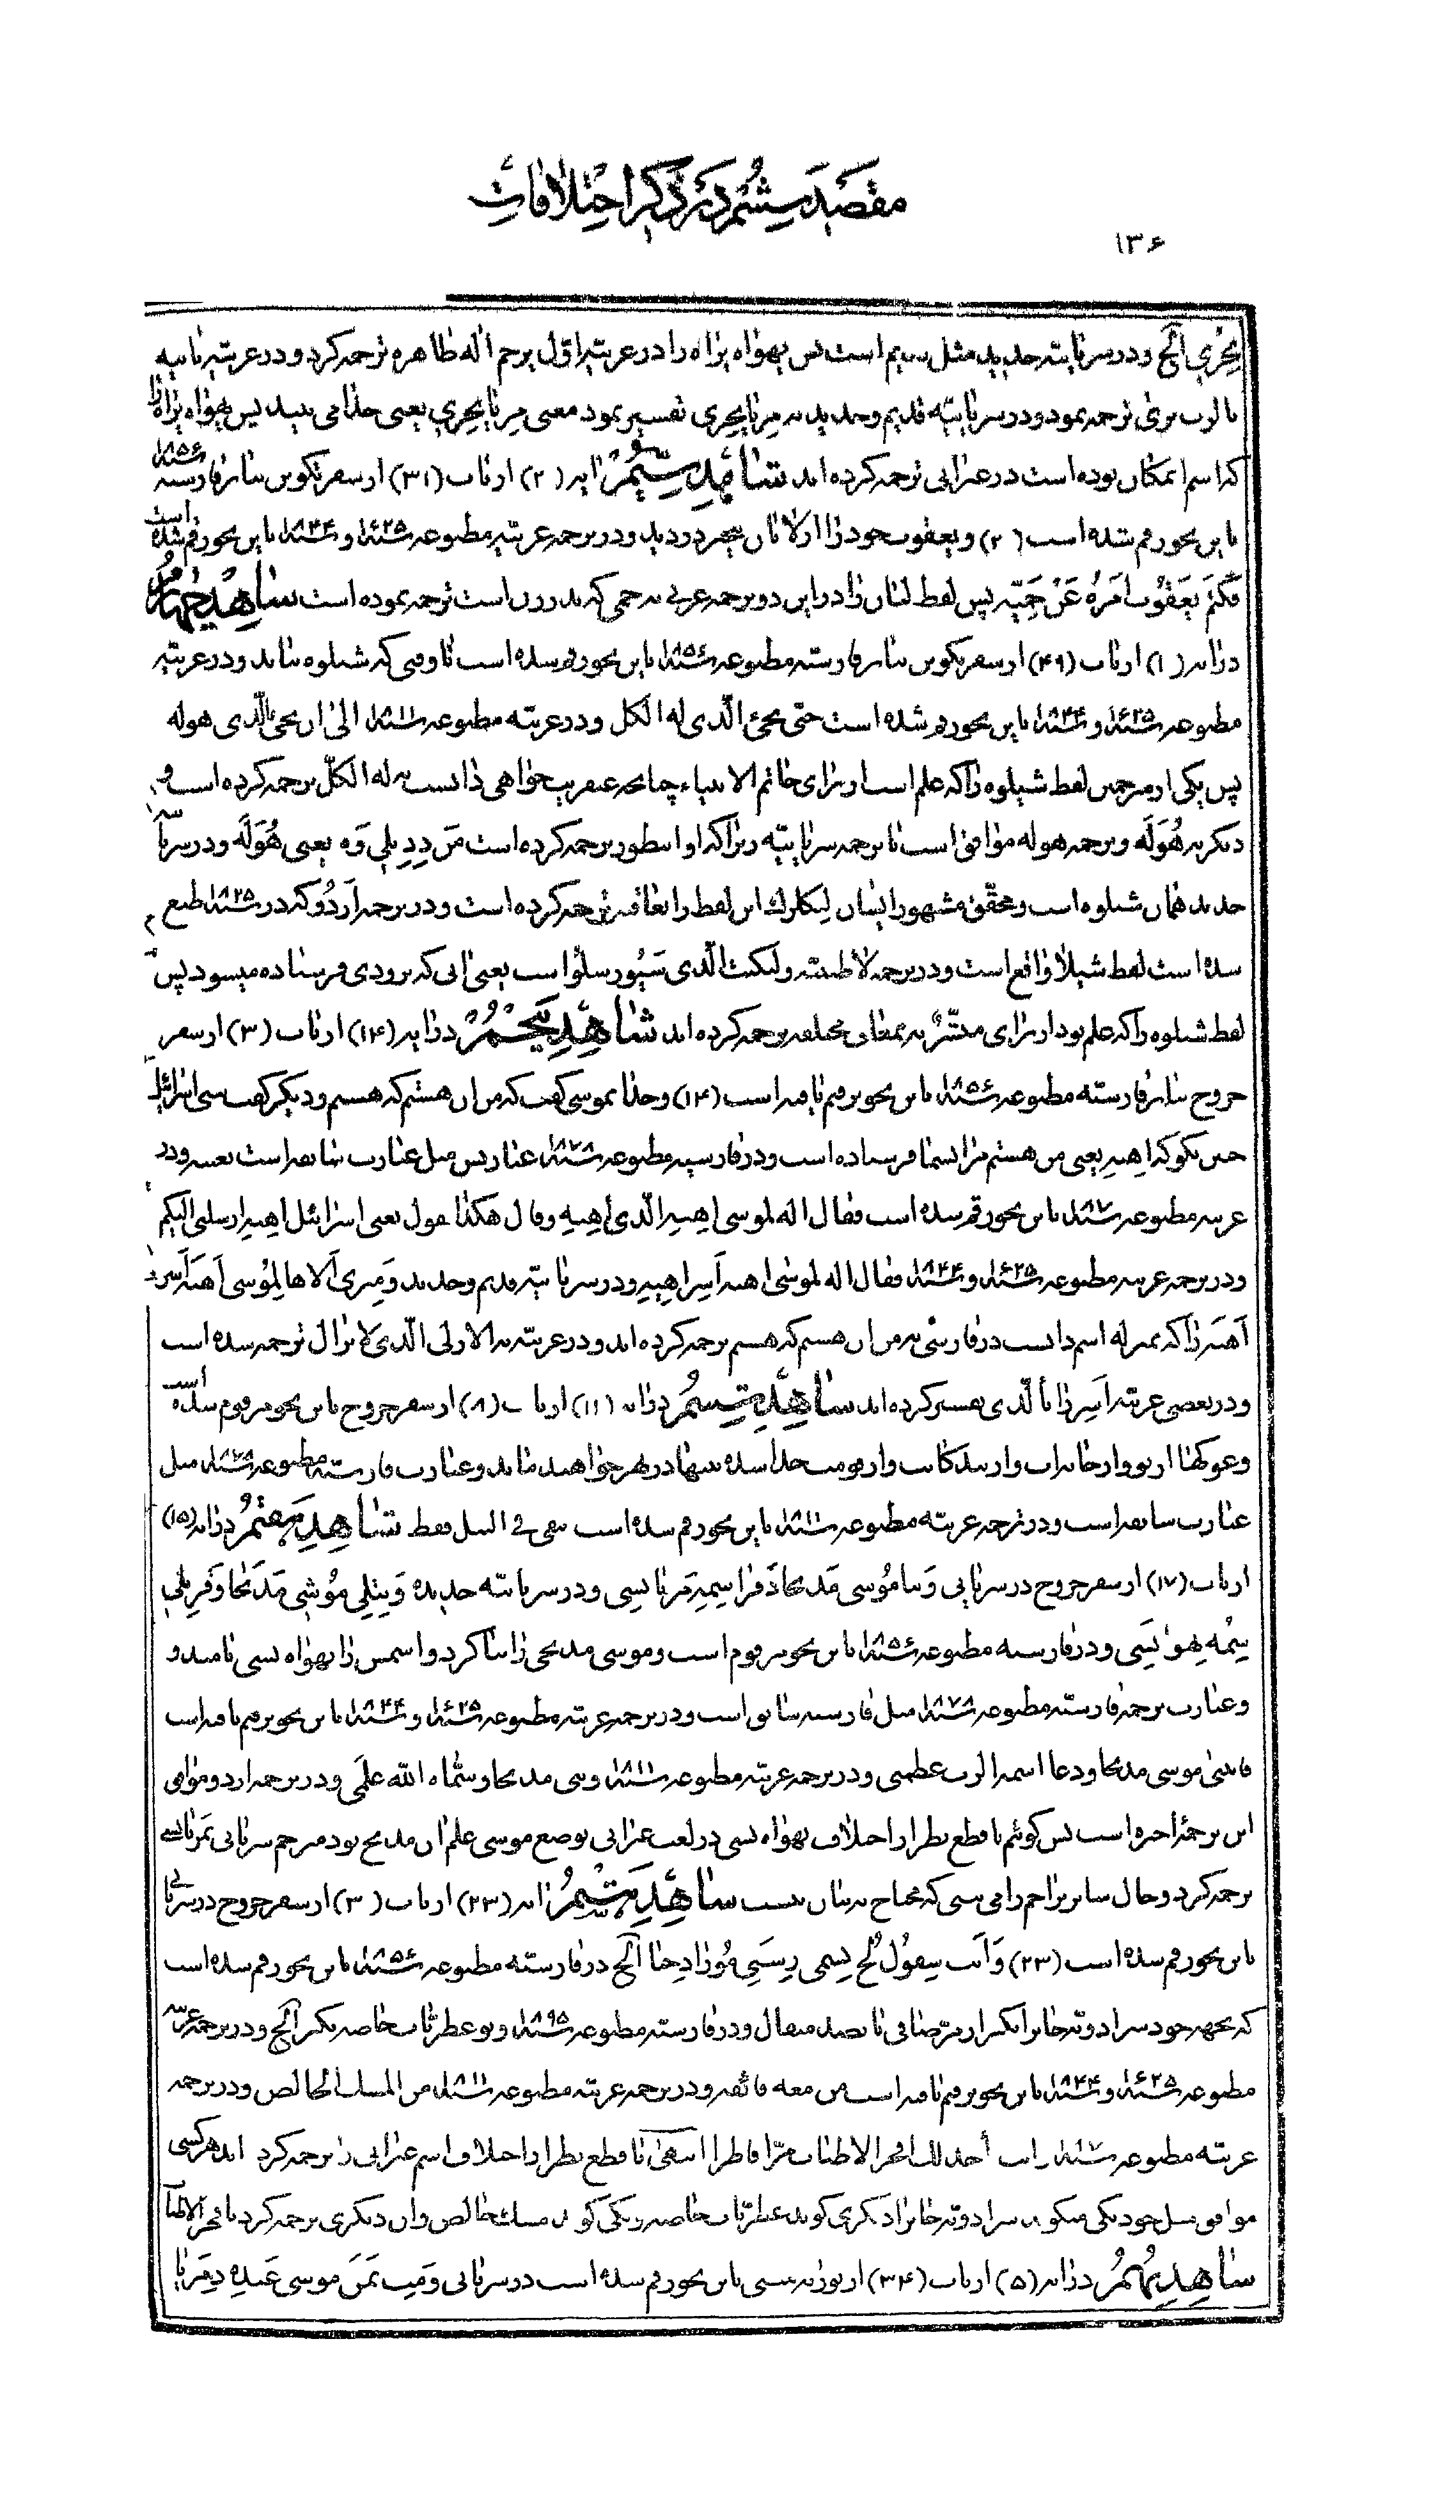 مقصد ششم در ذکر اختلافات
۱۳۶
یحزی الخ و در سریانیه جدید مثل قدیم است پس یهواه یراه را در عربیه اول برحم الله ظاهره ترجمه کرد و در عربیه ثانیه
بالرب یری ترجمه نمود و در سریانیه قدیم و جدید به مریا یحزی تفسیر نمود معنی مریا یحزی یعنی خدا می بیند پس یهواه یراه را
که اسم امکان بوده است در عبرانی ترجمه کرده اند شاهد سیم آیه (۲) از باب (۳۱) از سفر تکوین بنابر فارسیه ۱۸۵۶
باین نحو رقم شده است (۲) و یعقوب خود را از لابان بیچهره دید و در ترجمه عربیه مطبوعه سنه ۱۶۲۵ و سنه ۱۸۴۴ باین نحو رقم شده است
فکتم یعقوب امره عن حمیه پس لفظ لابان را در این دو ترجمه عربی به حمی که پدر زن است ترجمه نموده است شاهد چهارم
در آیه (۱۰) از باب (۴۹) از سفر تکوین بنابر فارسیه مطبوعه سنه ۱۸۵۶ باین نحو رقم شده است تا وقتی که شیلوه بیاید و در عربیه
مطبوعه سنه ۱۶۲۵ و سنه ۱۸۴۴ باین نحو رقم شده است حتی یجئ الذی له الکل و در عربیه مطبوعه سنه ۱۸۱۱ الی ان یجئ الذی هو له
پس یکی از مترجمین لفظ شیلوه را که علم است از برای خاتم الانبیاء چنانچه عنقریب خواهی دانست به له الکل ترجمه کرده است و
دیگر به هو له و ترجمه هو له موافق است با ترجمه سریانیه زیرا که او اینطور ترجمه کرده است من ددیلی وه یعنی هو له و در سریانیه
جدید همان شیلوه است و محقق مشهور ایشان لیکلرک این لفظ را بعاقبه ترجمه کرده است و در ترجمه اردو که در سنه ۱۸۲۵ طبع
شده است لفظ شیلا واقع است و در ترجمه لاطینیه ولکیت الذی سیورسلو است یعنی آنی که بزودی فرستاده میشود پس
لفظ شیلوه را که علم بود از برای مبشر به بمعانی مختلفه ترجمه کرده اند شاهد پنجم در آیه (۱۴) از باب (۳) از سفر
خروج بنابر فارسیه مطبوعه سنه ۱۸۵۶ باین نحو رقم یافته است (۱۴) و خدا بموسی گفت که من آن هستم که هستم و دیگر گفت ببنی اسرائیل
چنین بگو که اهیه یعنی من هستم مرا بشما فرستاده است و در فارسیه مطبوعه سنه ۱۸۷۸ عبارتش مثل عبارت سابقه است بعینه و در
عربیه مطبوعه سنه ۱۸۷۰ باین نحو رقم شده است فقال الله لموسی اهیه الذی اهیه و قال هکذا تقول لبنی اسرائیل اهیه ارسلنی الیکم
و در ترجمه عربیه مطبوعه سنه ۱۶۲۵ و سنه ۱۸۴۴ فقال الله لموسی اهیه اشر اهیه و در سریانیه قدیم و جدید ومیری الاها لموسی اهیه اشر
اهیه را که بمنزله اسم ذاتست در فارسی به من آن هستم که هستم ترجمه کرده اند و در عربیه به الازلی الذی لا یزال ترجمه شده است
و در بعضی عربیه اشر را بالذی تفسیر کرده اند شاهد ششم در آیه (۱۱) از باب (۸) از سفر خروج باین نحو مرقوم شده است
و غوکها از تو و از خانه ات و از بندگانت و از قومت جدا شده تنها در نهر خواهند ماند و عبارت فارسیه مطبوعه سنه ۱۸۷۸ مثل
عبارت سابقه است و در ترجمه عربیه مطبوعه سنه ۱۸۱۱ باین نحو رقم شده است تبقی فی النیل فقط شاهد هفتم در آیه (۱۵)
از باب (۱۷) از سفر خروج در سریانی وبنا موسی مدبحا وقرا سمیه مریا نیسی و در سریانیه جدیده وبنیلی موشی مدبحا وقریلی
شمه یهوا نسی و در فارسیه مطبوعه سنه ۱۸۵۶ باین نحو مرقوم است و موسی مذبحی را بنا کرد و اسمش را یهواه نسی نامید و
و عبارت ترجمه فارسیه مطبوعه سنه ۱۸۷۸ مثل فارسیه سابق است و در ترجمه عربیه مطبوعه سنه ۱۶۲۵ و سنه ۱۸۴۴ باین نحو رقم یافته است
فابتنی موسی مذبحا ودعا اسمه الرب عظمنی و در ترجمه عربیه مطبوعه سنه ۱۸۱۱ وبنی مذبحا وسماه الله علمی و در ترجمه اردو موافق
این ترجمه اخیره است پس گوئیم با قطع نظر از اختلاف یهواه نسی در لغت عبرانی بوضع موسی علم آن مذبح بود مترجم سریانی بمریا نسی
ترجمه کرد و حال سایر تراجم را می بینی که محتاج به بیان نیست شاهد هشتم آیه (۲۳) از باب (۳۰) از سفر خروج در سریانی
باین نحو رقم شده است (۲۳) وانت سقول لخ بسمی ریسی مورا دخیا الخ در فارسیه مطبوعه سنه ۱۸۵۶ باین نحو رقم شده است
که بجهة خود سر ادویه جات بگیر از مر صافی پانصد مثقال و در فارسیه مطبوعه سنه ۱۸۹۵ و تو عطریات خاصه بگیر الخ و در ترجمه عربیه
مطبوعه سنه ۱۶۲۵ و سنه ۱۸۴۴ باین نحو رقم یافته است من میعه فائقه و در ترجمه عربیه مطبوعه سنه ۱۸۱۱ من المسک الخالص و در ترجمه
عربیه مطبوعه سنه ۱۸۷۰ وانت تأخذ لک افخر الاطیاب مرا قاطرا انتهی با قطع نظر از اختلاف اسم عبرانی را ترجمه کرده اند هر کسی
موافق میل خود یکی میگوید سر ادویه جات دیگری گوید عطریات خاصه یکی گوید مسک خالص و آن دیگری ترجمه کرد بافخر الاطیاب
شاهد نهم در آیه (۵) از باب (۳۴) از توریه مثنی باین نحو رقم شده است در سریانی ومیت تمن موسی عبده دمریا